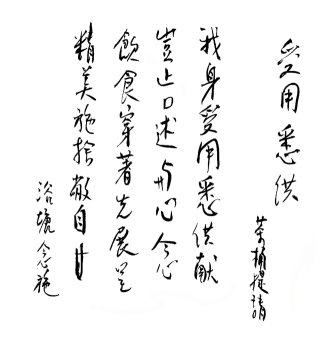 受用悉供
茶桶提請
我身受用悉供献
豈止口述与心念
飲食穿著先展呈
精美施捨敝自甘
浴塘念施